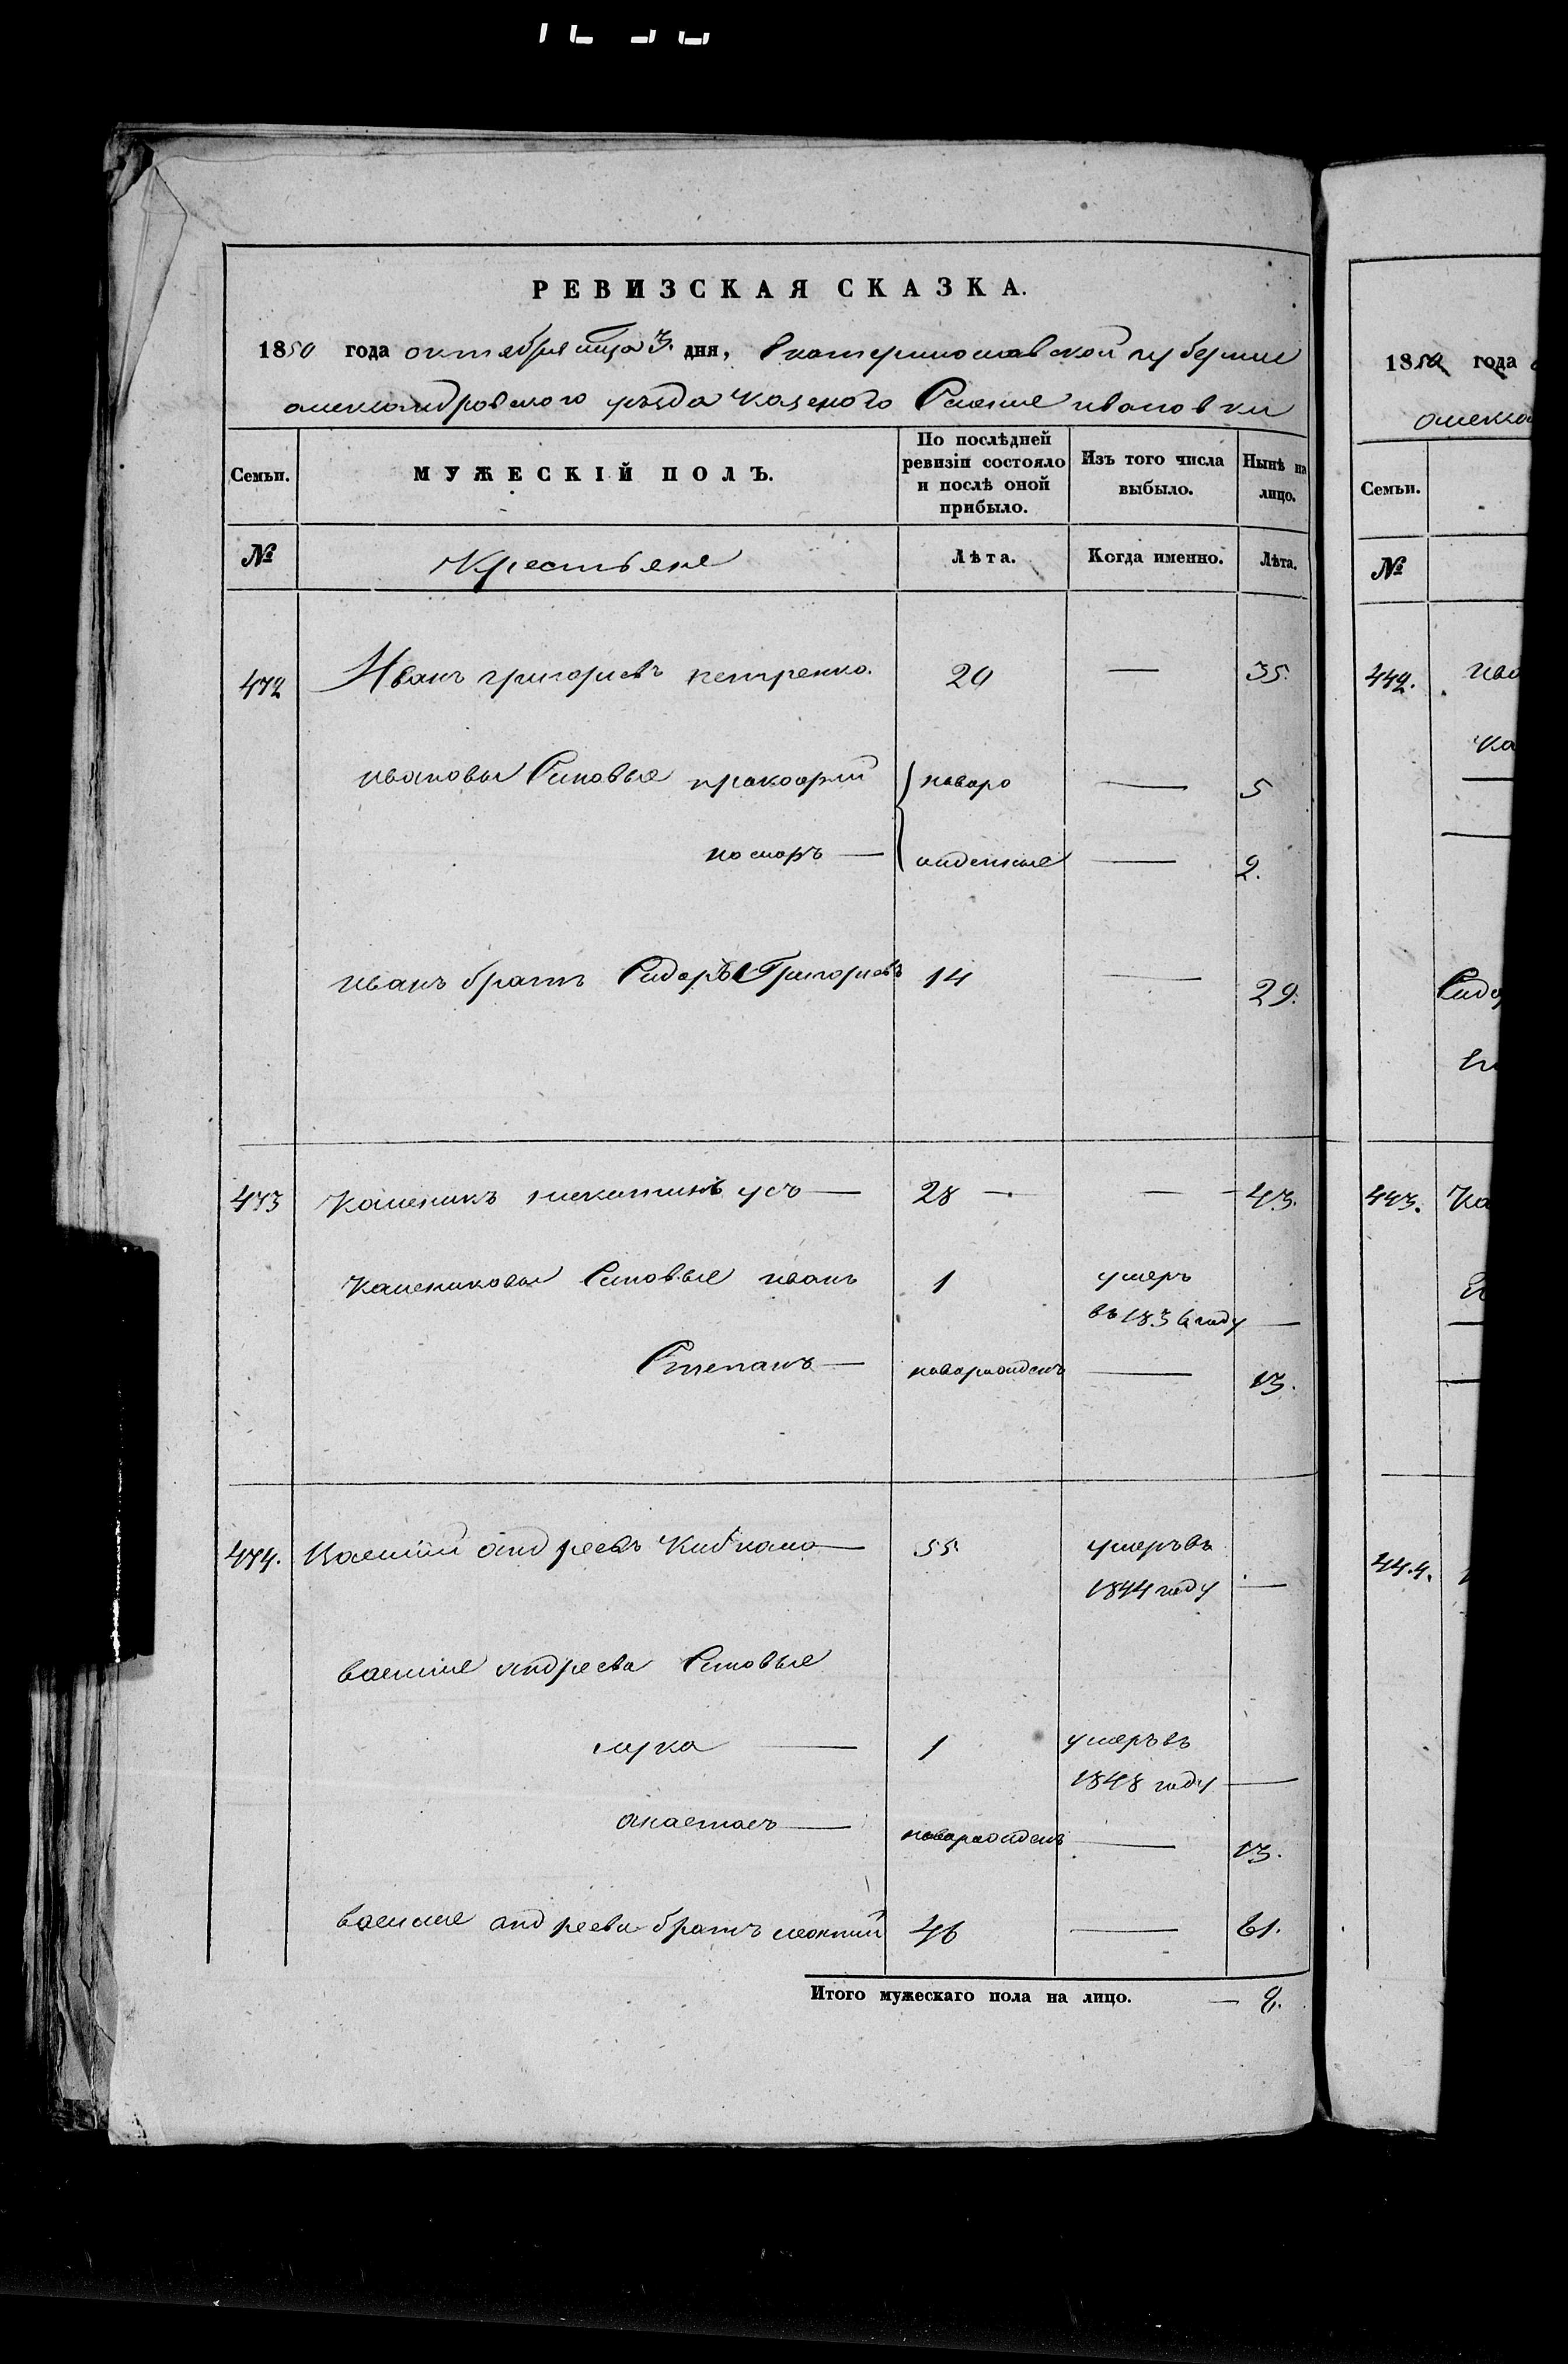 РЕВИЗСКАЯ СКАЗКА.
1850 года октября мца 3. дня, Екатеринославской губернии
александровского уезда казеного Селение ивановки
Семьи. МУЖЕСКІЙ ПОЛЪ. По послѣдней ревизіи состояло и послѣ оной прибыло. Изъ того числа выбыло. Нынѣ на лицо.
№ Крестьяне Лѣта. Когда именно. Лѣта.
472 Иванъ григориевъ петренко. 20 — 35.
ивановы Сыновье прокофий новоро — 5
носторъ — жденые — 2.
иванъ братъ Сидоръ Григориевъ 14 — 29.
473 Каленикъ никитинъ усъ — 28 — — 43.
Калениковы Сыновье иванъ 1 умеръ
въ 1836 году —
Степанъ — новорожденъ — 13.
474. Василий андреевъ — 55 умеръ въ
1844 году —
василие андреева Сыновье
лука — 1 умеръ въ
1848 году —
анастасъ — новорожденъ — 13.
василие андреева братъ леонтий 46 — 61.
Итого мужескаго пола на лицо. — 8.
1850 года
алекса
Семьи.
№
472. ива
Ка
Сидо
473. Ка
474.